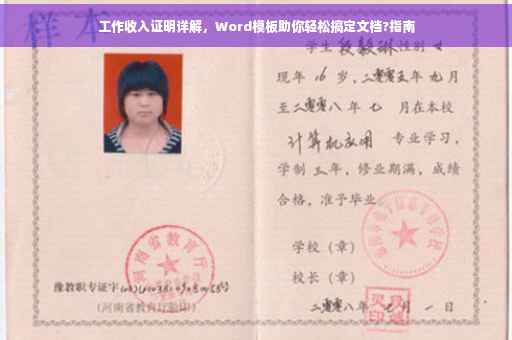 工作收入证明详解，Word模板助你轻松搞定文档?指南
样本
学生段毅琳性别女
现年16岁，二零零五年九月
至二零零八年七月在本校
计算机应用 专业学习，
学制三年，修业期满，成绩
合格，准予毕业
学校（章）
河南省教育厅
校长（章）
豫教职专证字
(河南省教育厅验印)
二零零八年 月一日